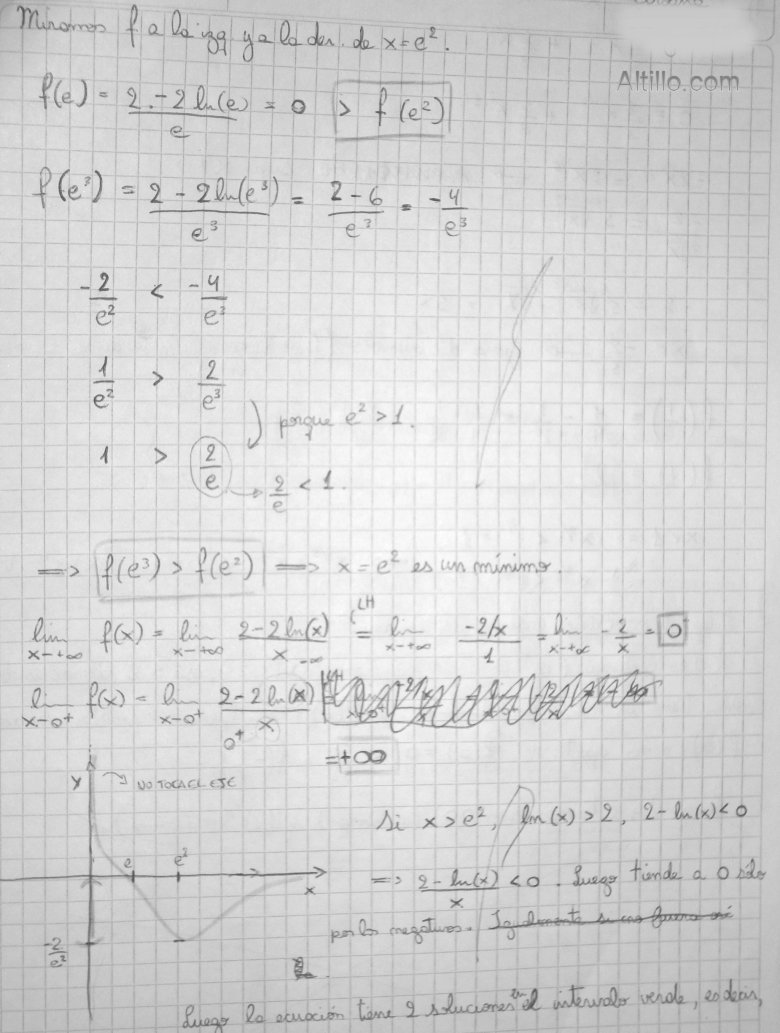 Miramos f a la izq y a la der. de x = e².
Altillo.com
f(e) = (2 - 2 ln(e))/e = 0 > f(e²)
f(e³) = (2 - 2 ln(e³))/e³ = (2 - 6)/e³ = -4/e³
-2/e² < -4/e³
1/e² > 2/e³
porque e² > 1.
1 > 2/e → 2/e < 1.
⟹ f(e³) > f(e²) ⟹ x = e² es un mínimo.
lim x→+∞ f(x) = lim x→+∞ (2 - 2 ln(x))/x -∞ = LH lim x→+∞ (-2/x)/1 = lim x→+∞ -2/x = 0
lim x→0⁺ f(x) = lim x→0⁺ (2 - 2 ln(x))/x 0⁺
= +∞
y → NO TOCA EL EJE
Si x > e², ln(x) > 2, 2 - ln(x) < 0
e e² x
⟹ (2 - ln(x))/x < 0. Luego tiende a 0 sólo
por los negativos. Igualmente si no fuera así
-2/e²
Luego la ecuación tiene 2 soluciones en el intervalo verde, es decir,